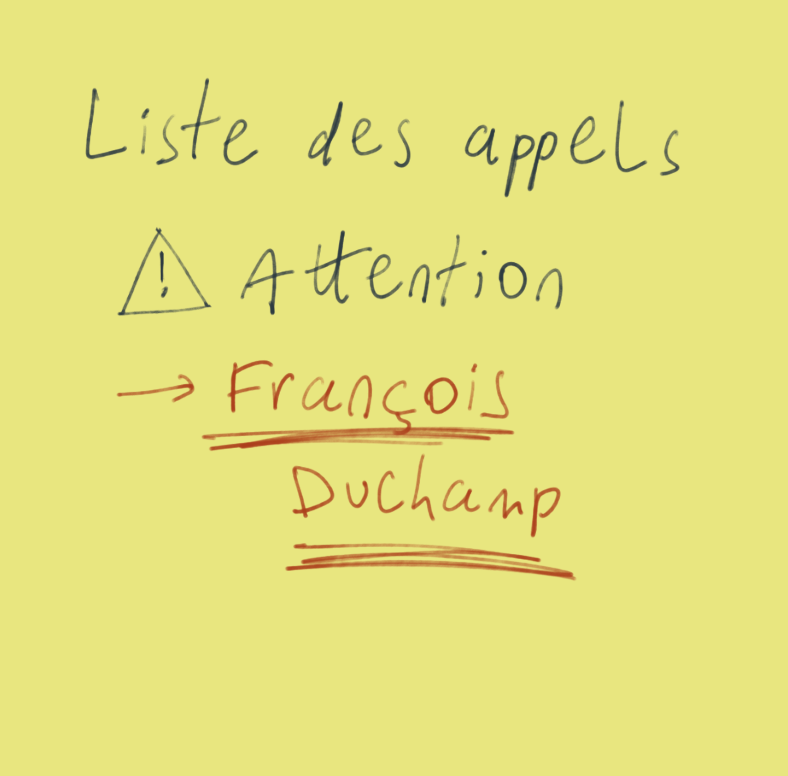 Liste des appels
⚠ Attention
→ François
Duchamp